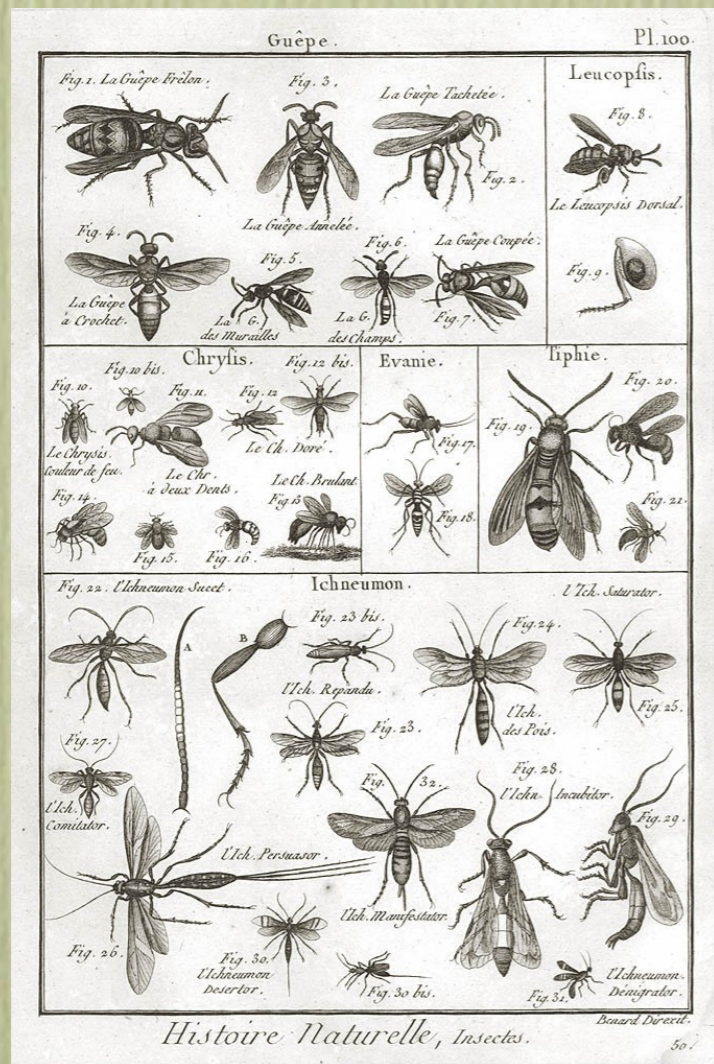 Guêpe.
Pl. 100.
Fig. 1. La Guêpe Frêlon.
Fig. 3.
La Guêpe Tachetée.
Fig. 2.
La Guêpe Annelée.
Fig. 4.
La Guêpe
à Crochet.
Fig. 5.
La G.
des Murailles
Fig. 6.
La G.
des Champs.
La Guêpe Coupée.
Fig. 7.
Leucopsis.
Fig. 8.
Le Leucopsis Dorsal.
Fig. 9.
Chrysis.
Fig. 10.
Fig. 10 bis.
Fig. 11.
Fig. 12
Fig. 12 bis.
Le Chrysis
Couleur de feu.
Le Chr.
à deux Dents.
Le Ch. Doré.
Fig. 14.
Fig. 15.
Fig. 16.
Le Ch. Brulant.
Fig. 13
Evanie.
Fig. 17.
Fig. 18.
Tiphie.
Fig. 19.
Fig. 20.
Fig. 21.
Ichneumon.
Fig. 22. l'Ichneumon Suect.
A
B
Fig. 23 bis.
l'Ich. Repandu.
Fig. 23.
Fig. 24.
l'Ich.
des Pois.
l'Ich. Saturator.
Fig. 25.
Fig. 27.
l'Ich.
Comitator.
l'Ich. Persuasor.
Fig. 26.
Fig. 32.
l'Ich. Manifestator.
Fig. 28.
l'Ichn. Incubitor.
Fig. 29.
Fig. 30.
l'Ichneumon
Desertor.
Fig. 30 bis.
Fig. 31.
l'Ichneumon
Dénigrator.
Benard Direxit.
Histoire Naturelle, Insectes.
50.